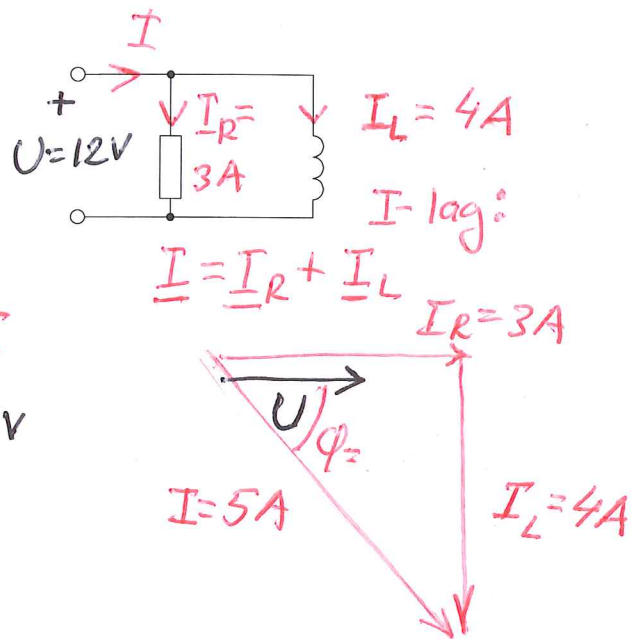 I
+
U=12V
I_R=
3A
I_L=4A
I-lag:
I=I_R+I_L
I_R=3A
V
U
φ=
I=5A
I_L=4A